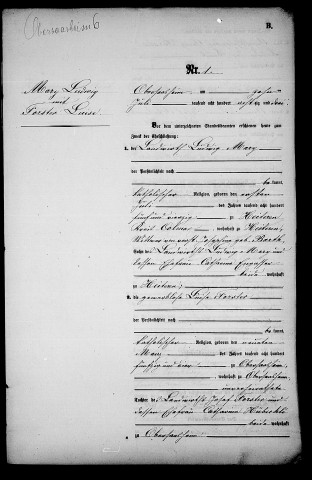 Obersaasheim 6
B.
Nr. 1.
Marx Ludwig
mit
Forster Luise
Obersaasheim, am
Juli tausend acht hundert
Vor dem unterzeichneten Standesbeamten erschienen heute zum
Zweck der Eheschließung:
1. der Landwirth Ludwig Marx
der Persönlichkeit nach
be kannt,
katholischer Religion, geboren den ersten
Juli des Jahres tausend acht hundert
fünf und vierzig zu Heiteren
Kreis Colmar, wohnhaft zu Heiteren,
Wittwer von Josephine geb. Barth,
Sohn des Landwirths Ludwig Marx und
dessen Ehefrau Catharina
beide wohnhaft
zu Heiteren;
2. die gewerblose Luise Forster
der Persönlichkeit nach
be kannt,
katholischer Religion, geboren den neunten
März des Jahres tausend acht hundert
fünfzig und zwei zu Obersaasheim,
wohnhaft zu Obersaasheim,
Tochter des Landwirths Josef Forster und
dessen Ehefrau Catharina
beide wohnhaft
zu Obersaasheim;